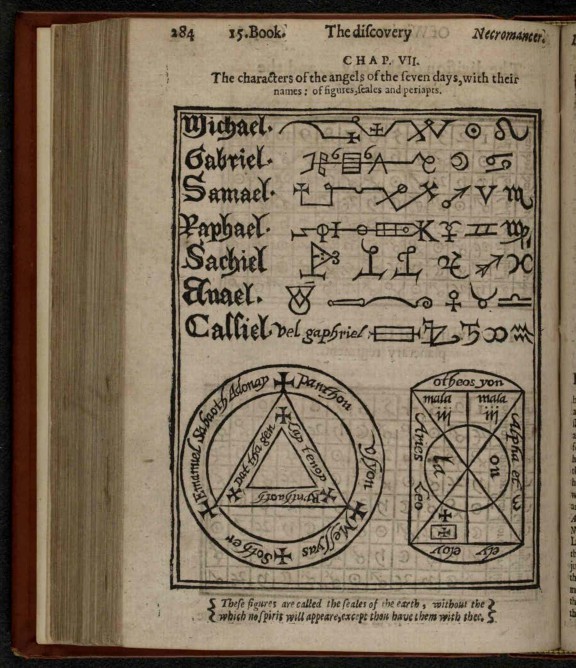 284 15.Book. The diſcovery Necromancer.
CHAP. VII.
The characters of the angels of the ſeven days, with their
names: of figures, ſeales and periapts.
Michael.
Gabriel.
Samael.
Raphael.
Sachiel
Anael.
Caſſiel. vel gaphriel:
Panthou
Uſyon
Meſſyas
Sother
Emanuel Sabaoth Adonay
otheos yon
mala mala
Alpha et ω
Aries Leo
ou
ely eloy
Theſe figures are called the ſeales of the earth, without the
which no ſpirit will appeare, except thou have them with thee.